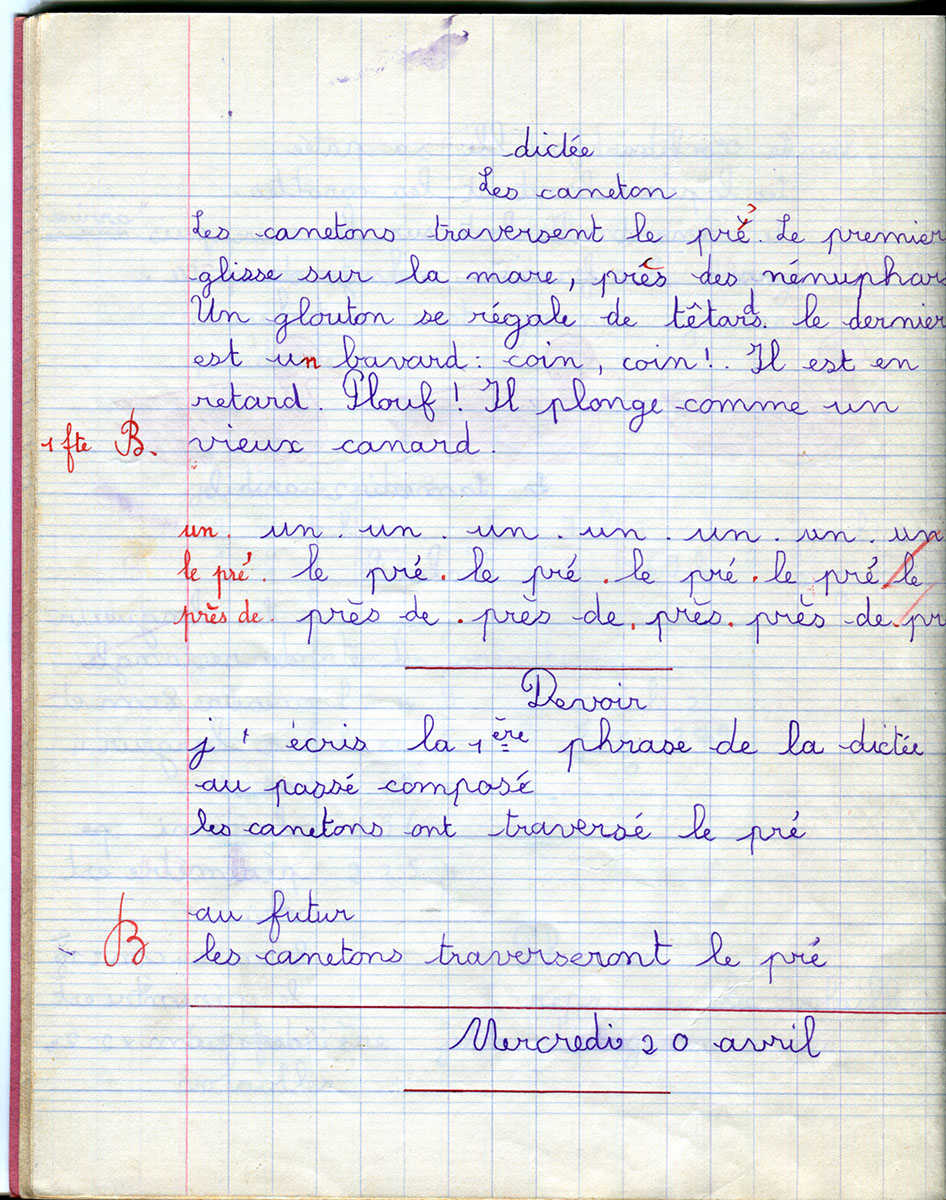 dictée
Les caneton
Les canetons traversent le pré. Le premier
glisse sur la mare, près des nénuphars
Un glouton se régale de têtards. le dernier
est un bavard : coin, coin ! . Il est en
retard. Plouf ! Il plonge comme un
1 fte B. vieux canard.
un. un. un. un. un. un. un. un
le pré. le pré. le pré. le pré. le pré le
près de. près de. près de. près. près de. pr
Devoir
j ' écris la 1ère phrase de la dictée
au passé composé
les canetons ont traversé le pré
au futur
B les canetons traverseront le pré
Mercredi 20 avril